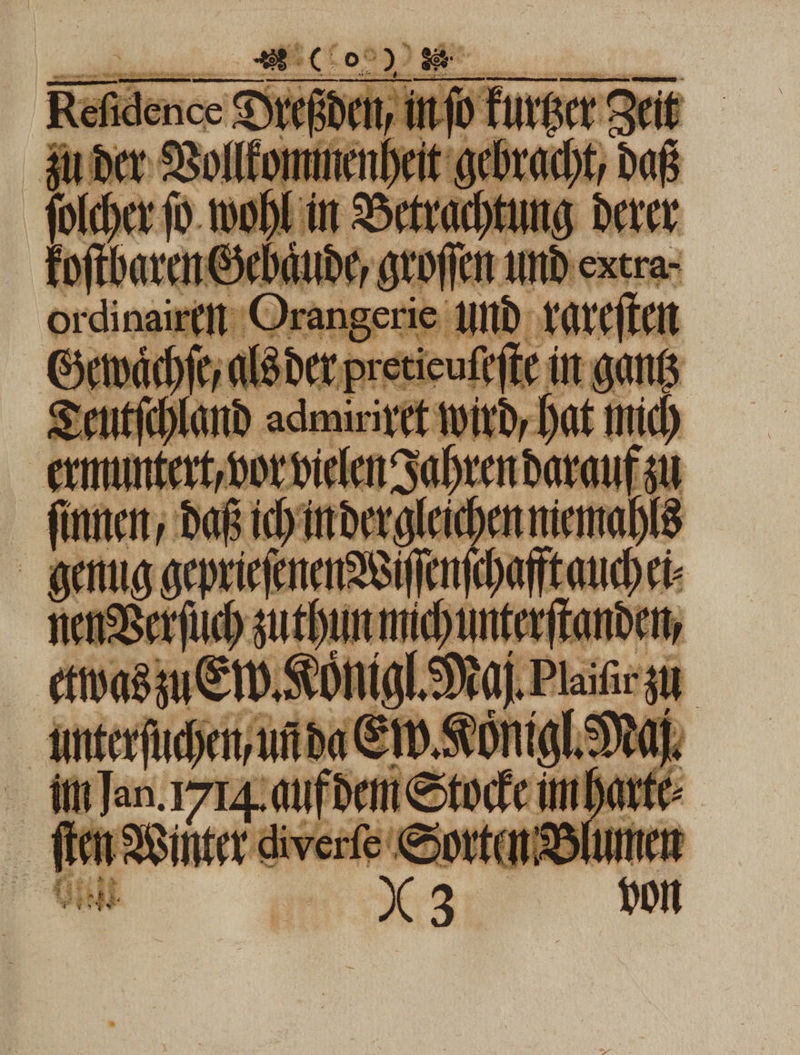 ( o )
Reſidence Dreßden, in ſo kurtzer Zeit
zu der Vollkommenheit gebracht, daß
ſolcher ſo wohl in Betrachtung derer
koſtbaren Gebaͤude, groſſen und extra-
ordinairen Orangerie und rareſten
Gewaͤchſe, als der pretieuſeſte in gantz
Teutſchland admiriret wird, hat mich
ermuntert, vor vielen Jahren darauf zu
ſinnen, daß ich in dergleichen niemahls
genug geprieſenen Wiſſenſchafft auch ei-
nen Verſuch zu thun mich unterſtanden,
etwas zu Ew. Koͤnigl. Maj. Plaiſir zu
unterſuchen, uñ da Ew. Koͤnigl. Maj.
im Jan. 1714. auf dem Stocke im harte-
ſten Winter diverſe Sorten Blumen
)( 3 von